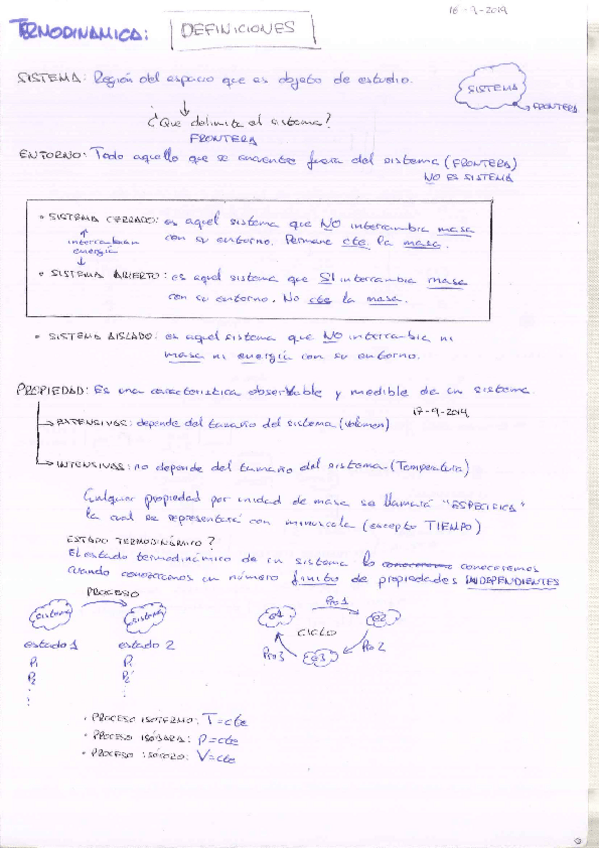 16-9-2014
TERMODINAMICA: DEFINICIONES
SISTEMA: Región del espacio que es objeto de estudio.
SISTEMA
FRONTERA
¿Que delimita el sistema?
FRONTERA
ENTORNO: Todo aquello que se encuentre fuera del sistema (FRONTERA)
NO ES SISTEMA
• SISTEMA CERRADO: es aquel sistema que NO intercambia masa
con su entorno. Permane cte la masa.
intercambian
energía
• SISTEMA ABIERTO: es aquel sistema que SI intercambia masa
con su entorno. No cte la masa.
• SISTEMA AISLADO: es aquel sistema que NO intercambia ni
masa ni energía con su entorno.
PROPIEDAD: Es una caracteristica observable y medible de un sistema.
17-9-2014
EXTENSIVAS: depende del tamaño del sistema (volumen)
INTENSIVAS: no depende del tamaño del sistema (Temperatura)
Cualquier propiedad por unidad de masa se llamará "ESPECIFICA"
la cual se representará con minuscula (excepto TIEMPO)
ESTADO TERMODINÁMICO?
El estado termodinámico de un sistema lo conoceremos
cuando conozcamos un número finito de propiedades INDEPENDIENTES
PROCESO
sistema sistema
estado 1 estado 2
P1 P1'
P2 P2'
Pro 1
e1 e2
CICLO
Pro 3 e3 Pro 2
• PROCESO ISOTERMO: T=cte
• PROCESO ISÓBARA: P=cte
• PROCESO ISÓCORO: V=cte